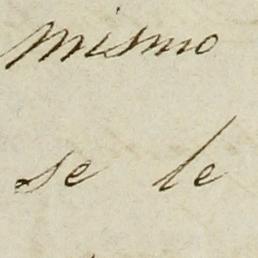 mismo
se le